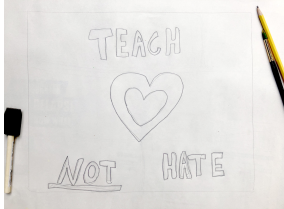 TEACH
NOT HATE